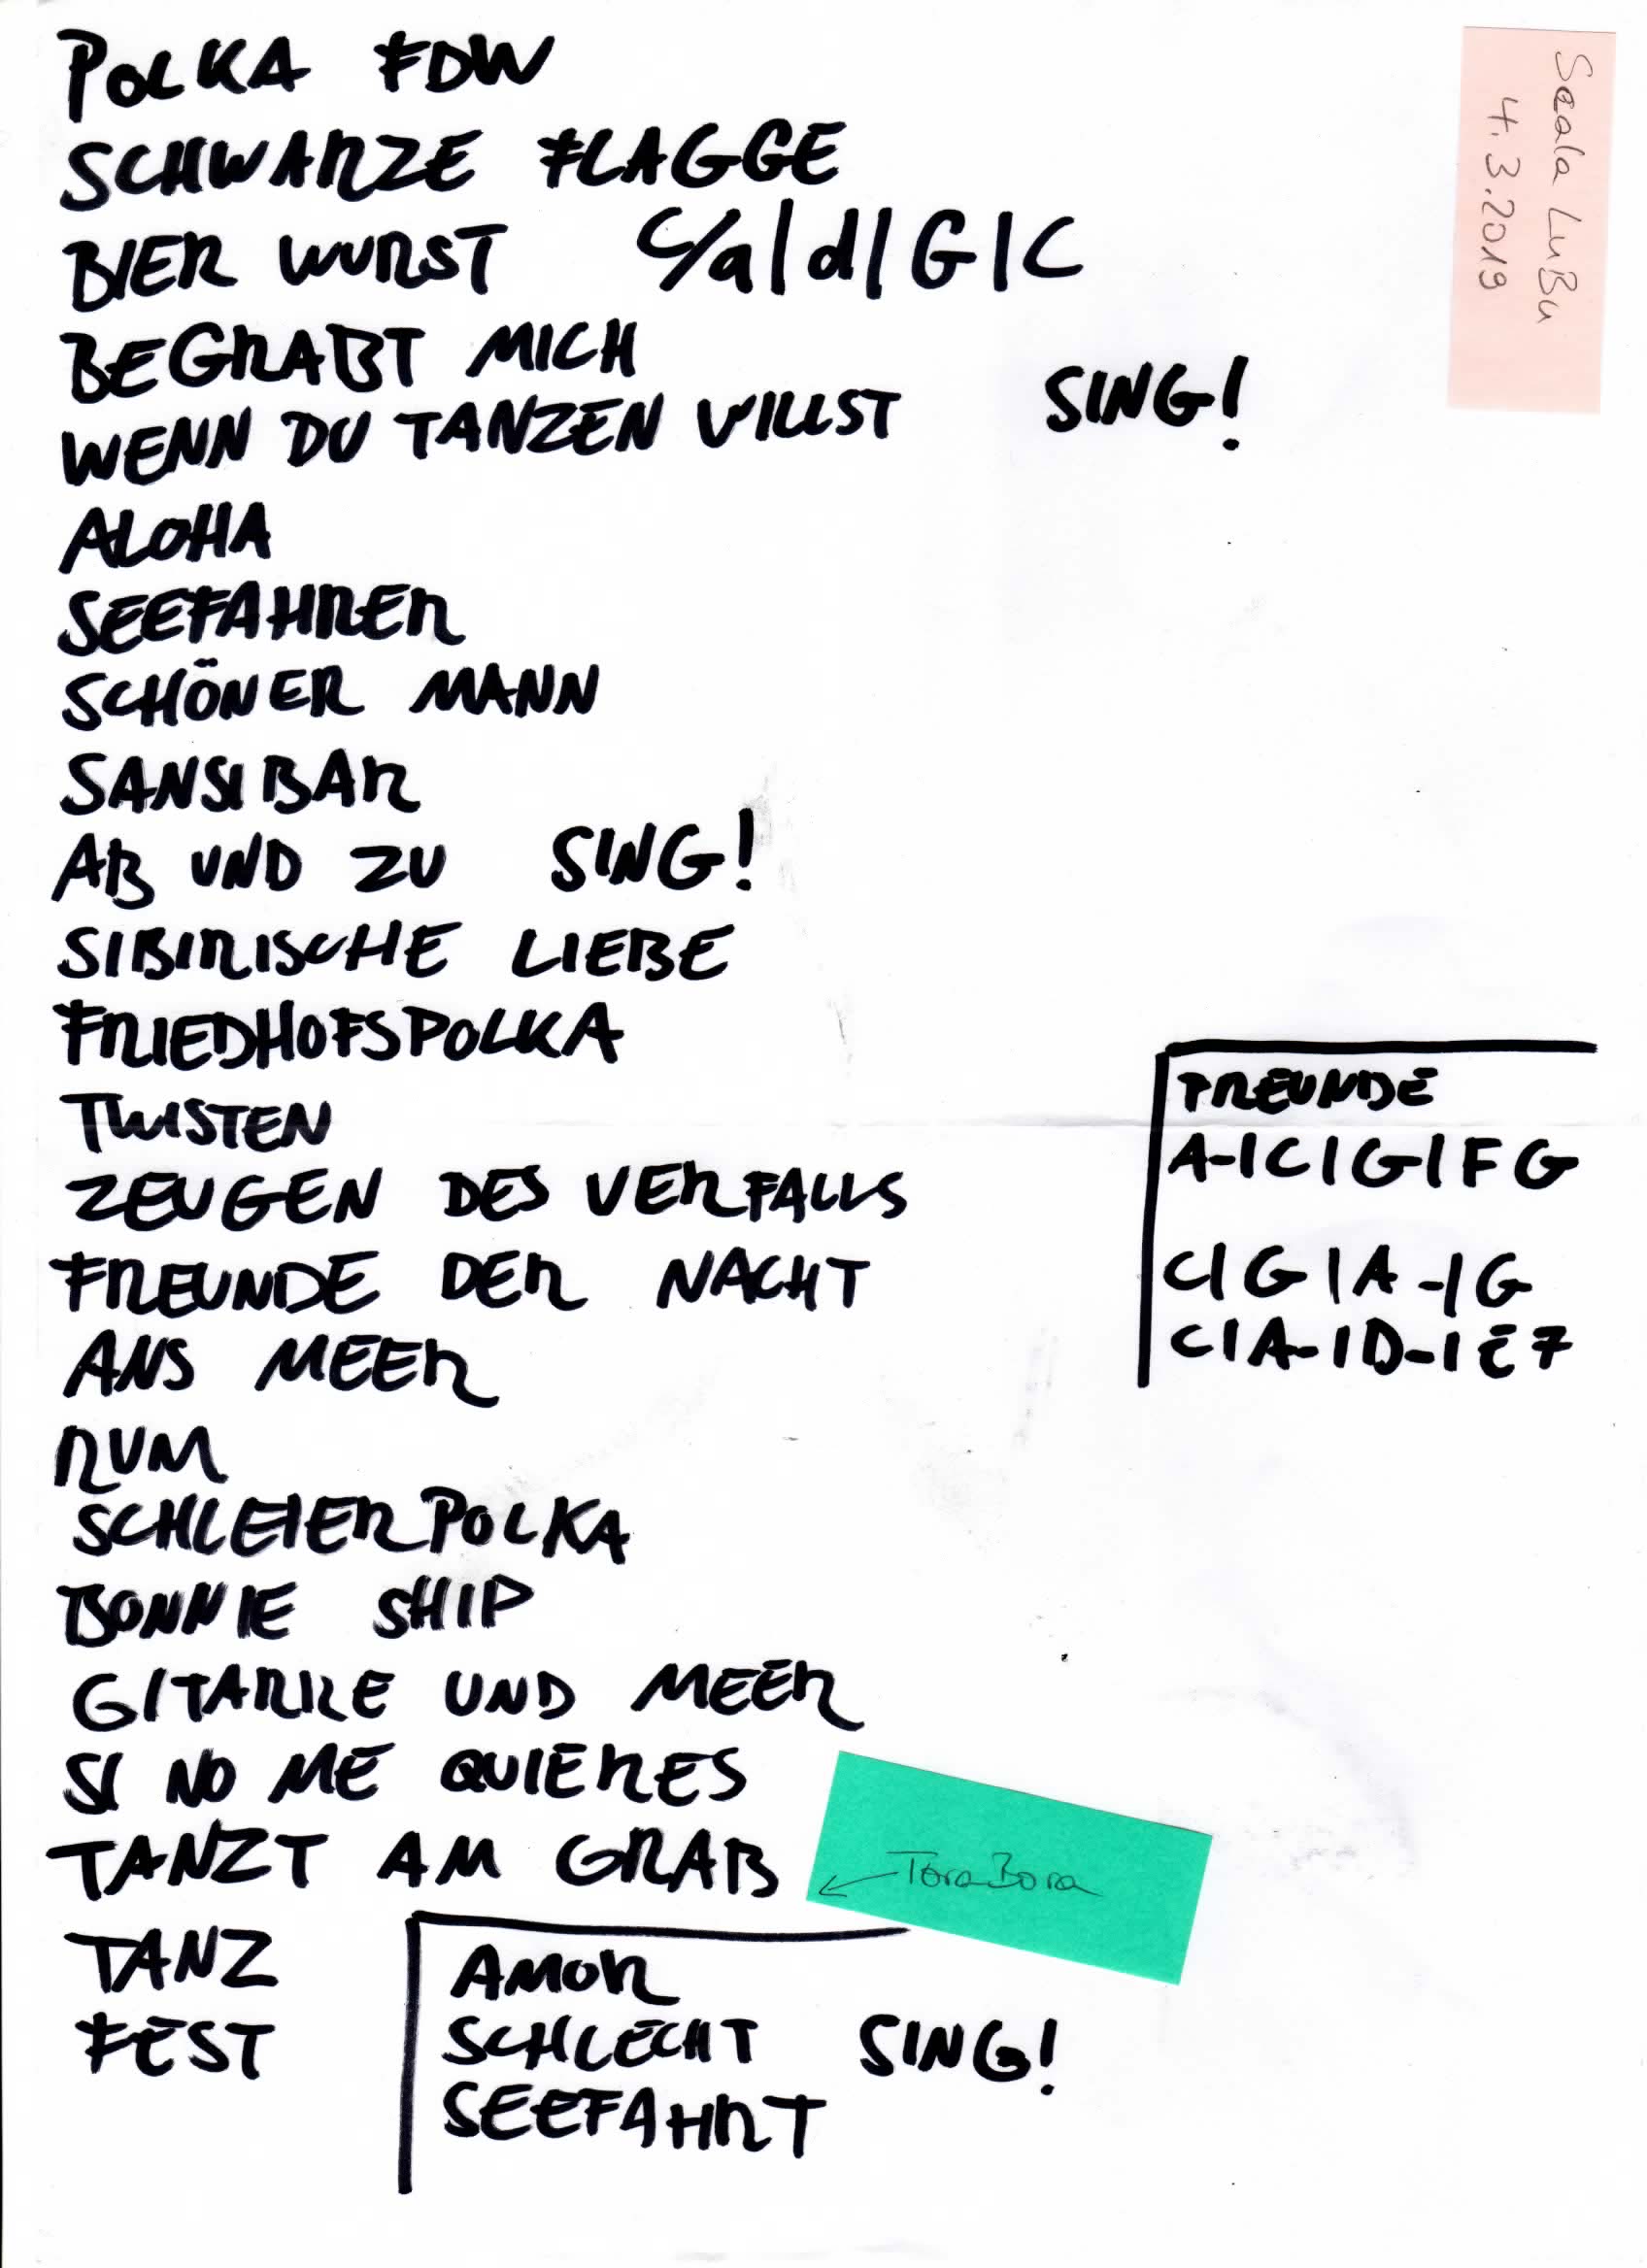 POLKA FDW
SCHWARZE FLAGGE
BIER WURST C/a|d|G|C
BEGRABT MICH
WENN DU TANZEN WILLST SING!
ALOHA
SEEFAHRER
SCHÖNER MANN
SANSIBAR
AB UND ZU SING!
SIBIRISCHE LIEBE
FRIEDHOFSPOLKA
TWISTEN
ZEUGEN DES VERFALLS
FREUNDE DER NACHT
ANS MEER
RUM
SCHLEIERPOLKA
BONNIE SHIP
GITARRE UND MEER
SI NO ME QUIERES
TANZT AM GRAB
TANZ
FEST
AMOR
SCHLECHT SING!
SEEFAHRT
FREUNDE
A-|C|G|F G
C|G|A-|G
C|A-|D-|E7
ToraBora
Scala LuBu
4.3.2019